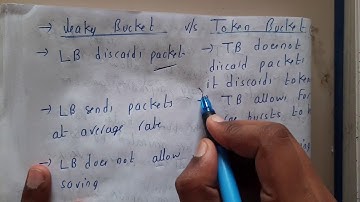 → Leaky Bucket v/s Token Bucket
→ LB discards packets
→ TB doesnot
discard packets
it discards token
→ LB sends packets
at average rate
→ TB allows for
bursts to
→ LB does not allow
saving